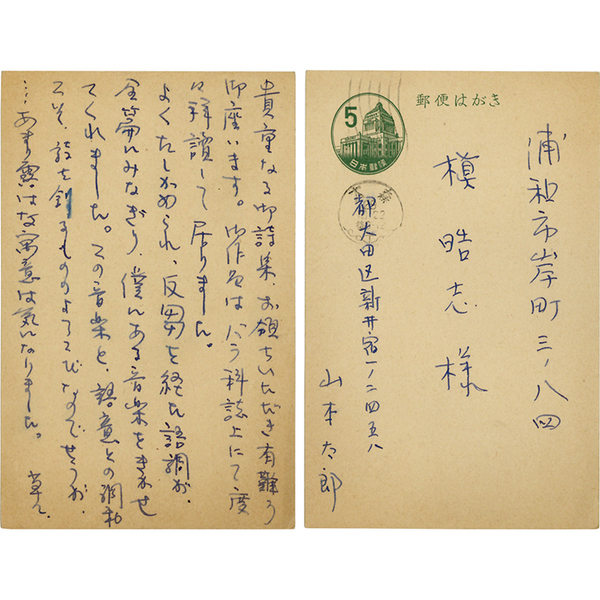 貴重なる御詩集、お頒ちいただき有難う
御座います。御作品はバラ科誌上にて度
々拝讀して居りました。
よくたしかめられ、反芻を経た語調が、
全篇にみなぎり、僕にある音楽をきかせ
てくれました。この音楽と、語意との調和
こそ、詩を創るもののよろこびなのでせうが、
…あまり露はな寓意は気になりました。
草々
郵便はがき
5
日本郵便
22
浦和市岸町三ノ八四
槇晧志様
都大田区新井宿一ノ二四五八
山本太郎